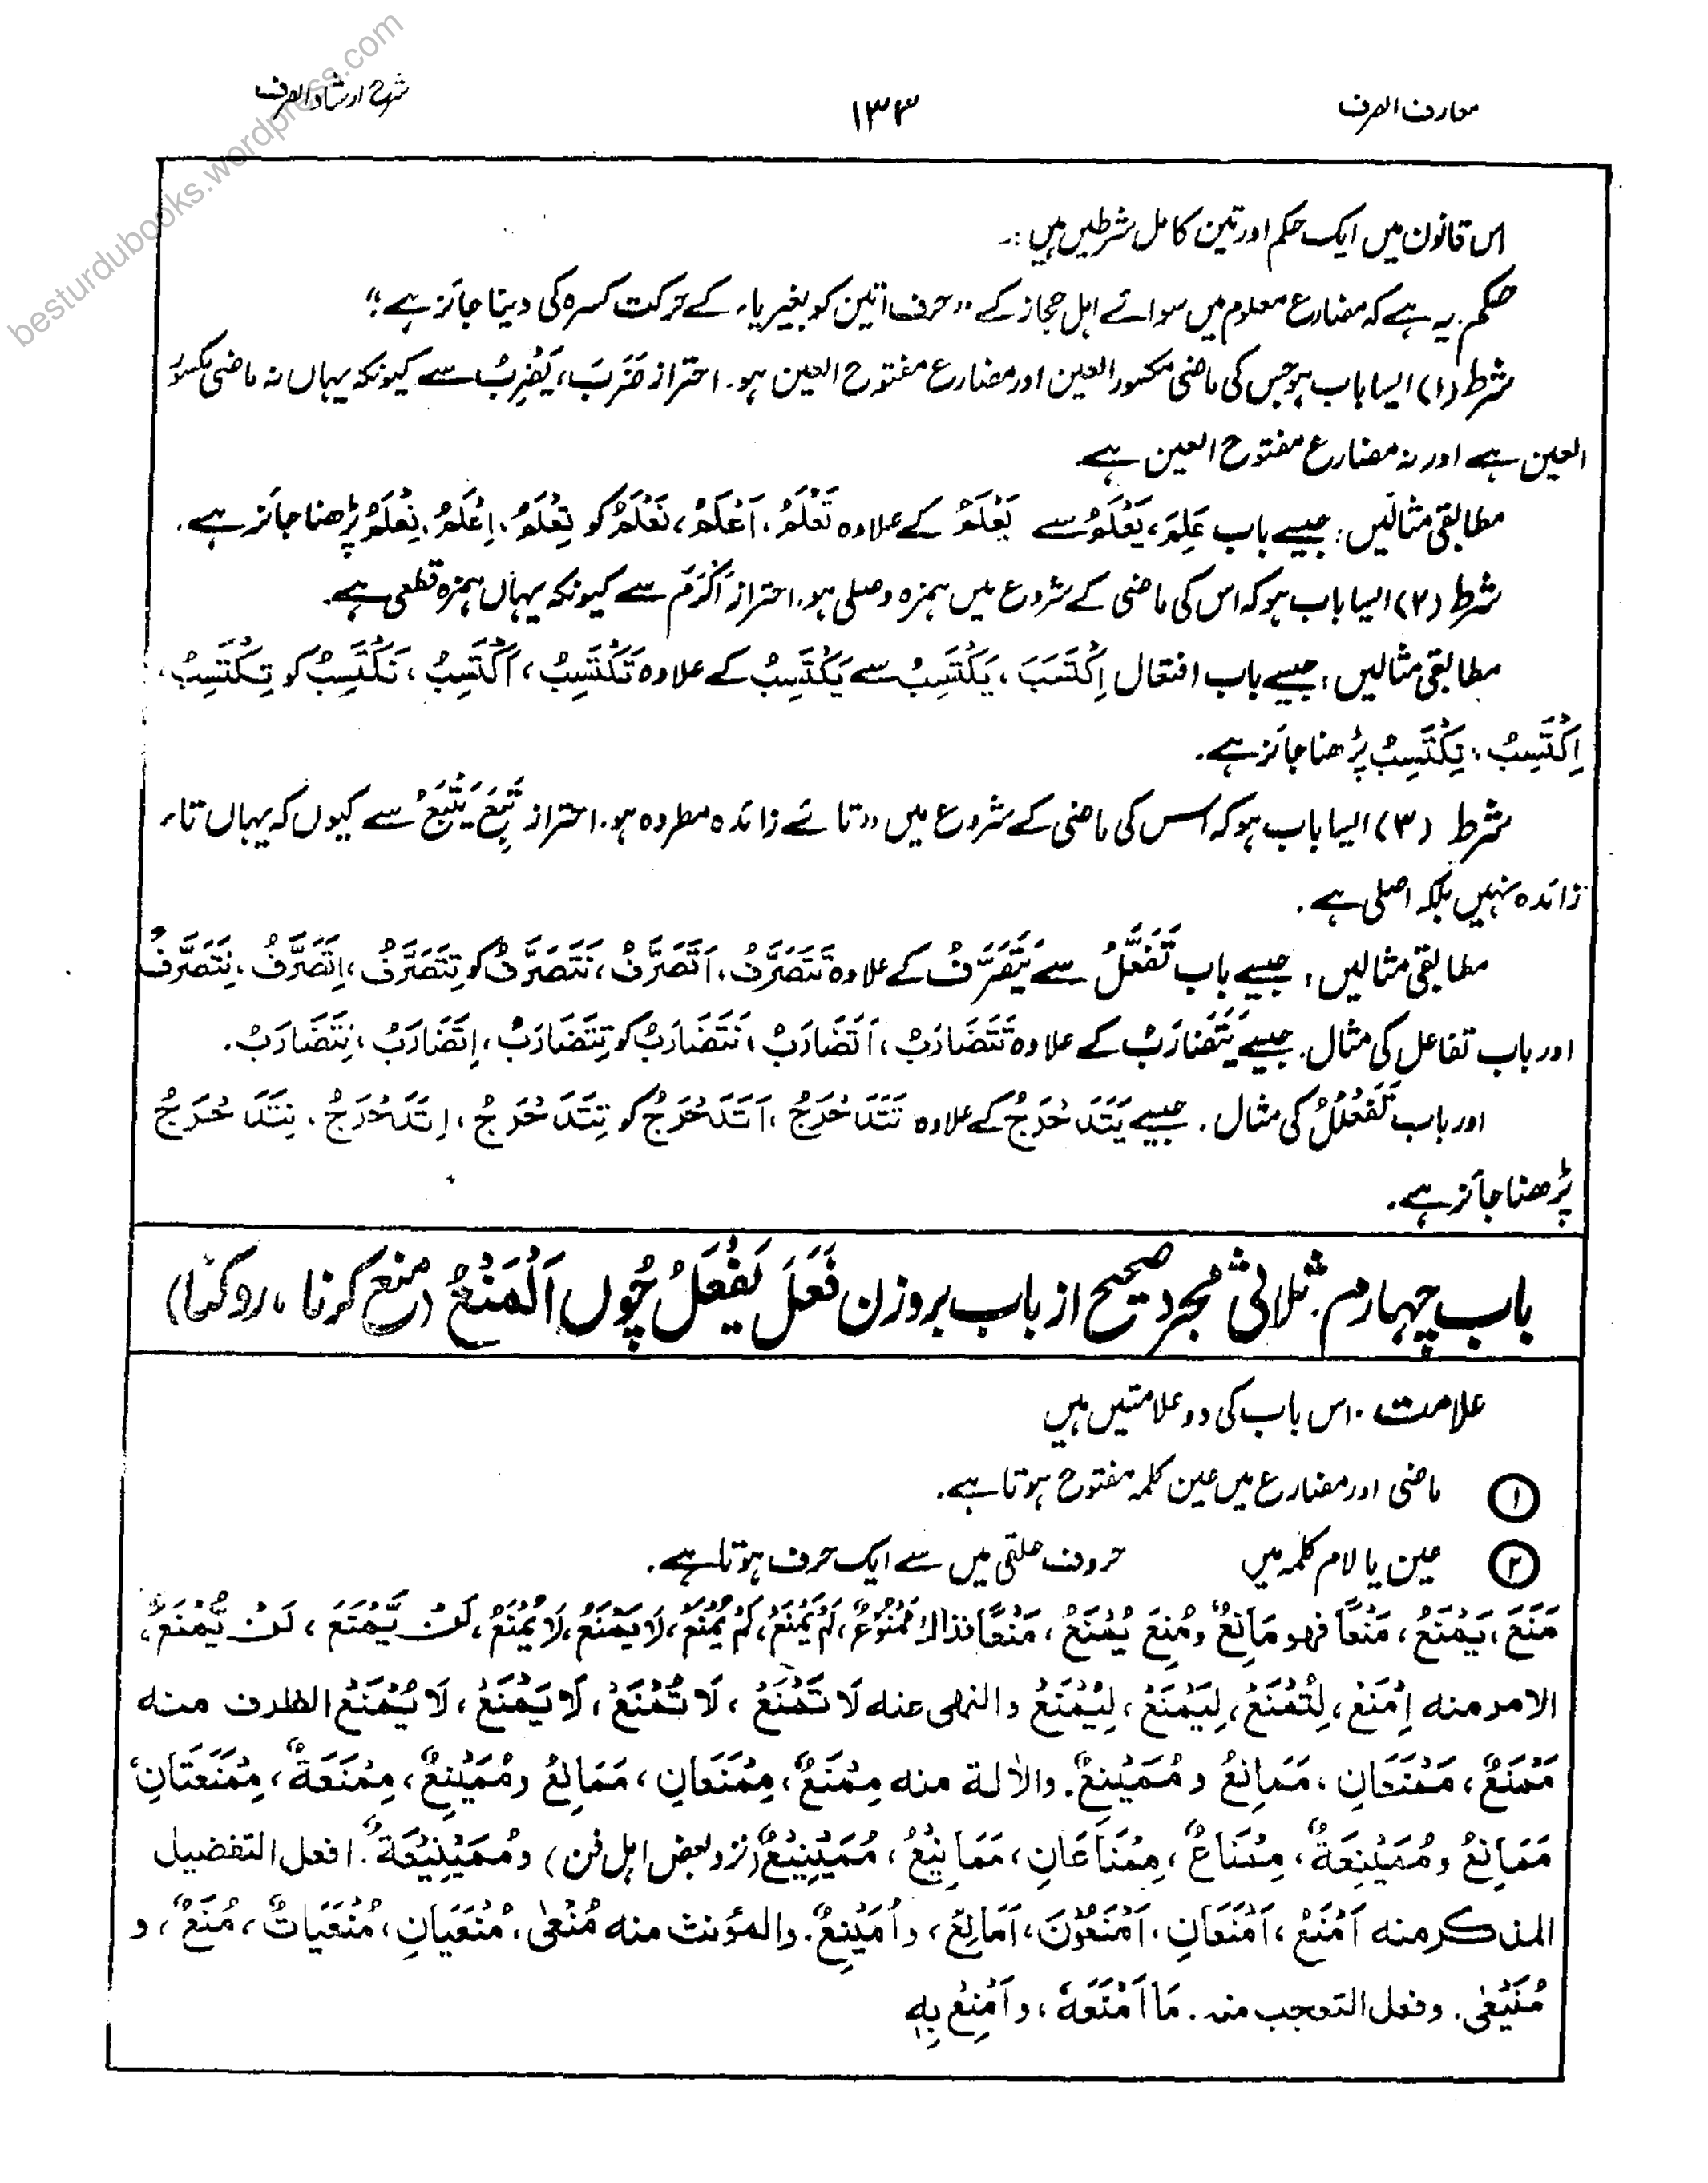 معارف الصرف
۱۳۳
شرح ارشاد الصرف
besturdubooks.wordpress.com
اس قانون میں ایک حکم اور تین کامل شرطیں ہیں :۔
حکم. یہ ہے کہ مضارع معلوم میں سوائے اہل حجاز کے "حرف اتین کو بغیر یاء کے حرکت کسرہ کی دینا جائز ہے"
شرط (۱) ایسا باب ہو جس کی ماضی مکسور العین اور مضارع مفتوح العین ہو. احتراز ضَرَبَ، یَضْرِبُ سے کیونکہ یہاں نہ ماضی مکسور
العین ہے اور نہ مضارع مفتوح العین ہے
مطابقی مثالیں: جیسے باب عَلِمَ، یَعْلَمُ سے یَعْلَمُ کے علاوہ تَعْلَمُ، اَعْلَمُ، نَعْلَمُ کو تِعْلَمُ، اِعْلَمُ، نِعْلَمُ پڑھنا جائز ہے.
شرط (۲) ایسا باب ہو کہ اس کی ماضی کے شروع میں ہمزہ وصلی ہو. احتراز اَکْرَمَ سے کیونکہ یہاں ہمزہ قطعی ہے.
مطابقی مثالیں: جیسے باب افتعال اِکْتَسَبَ، یَکْتَسِبُ سے یَکْتَسِبُ کے علاوہ تَکْتَسِبُ، اَکْتَسِبُ، نَکْتَسِبُ کو تِکْتَسِبُ،
اِکْتَسِبُ، نِکْتَسِبُ پڑھنا جائز ہے.
شرط (۳) ایسا باب ہو کہ اس کی ماضی کے شروع میں "تائے زائدہ مطردہ ہو. احتراز تَبِعَ یَتْبَعُ سے کیوں کہ یہاں تاء
زائدہ نہیں بلکہ اصلی ہے.
مطابقی مثالیں: جیسے باب تَفَعُّلُ سے یَتَصَرَّفُ کے علاوہ تَتَصَرَّفُ، اَتَصَرَّفُ، نَتَصَرَّفُ کو تِتَصَرَّفُ، اِتَصَرَّفُ، نِتَصَرَّفُ
اور باب تفاعل کی مثال. جیسے یَتَضَارَبُ کے علاوہ تَتَضَارَبُ، اَتَضَارَبُ، نَتَضَارَبُ کو تِتَضَارَبُ، اِتَضَارَبُ، نِتَضَارَبُ.
اور باب تَفَعْلُلُ کی مثال. جیسے یَتَدَحْرَجُ کے علاوہ تَتَدَحْرَجُ، اَتَدَحْرَجُ، نَتَدَحْرَجُ کو تِتَدَحْرَجُ، اِتَدَحْرَجُ، نِتَدَحْرَجُ
پڑھنا جائز ہے.
باب چہارم. ثلاثی مجرد صحیح از باب بروزن فَعَلَ یَفْعَلُ چُوں اَلْمَنْعُ (منع کرنا، روکنا)
علامت. اس باب کی دو علامتیں ہیں
۱ ماضی اور مضارع میں عین کلمہ مفتوح ہوتا ہے.
۲ عین یا لام کلمہ میں حروف حلقی میں سے ایک حرف ہوتا ہے.
مَنَعَ، یَمْنَعُ، مَنْعًا فہو مَانِعٌ ومُنِعَ یُمْنَعُ، مَنْعًا فذاك مَمْنُوْعٌ، لَمْ یَمْنَعْ، لَمْ یُمْنَعْ، لَا یَمْنَعُ، لَا یُمْنَعُ، لَنْ یَّمْنَعَ، لَنْ یُّمْنَعَ،
الامر منه اِمْنَعْ، لِتُمْنَعْ، لِیَمْنَعْ، لِیُمْنَعْ والنهی عنه لَا تَمْنَعْ، لَا تُمْنَعْ، لَا یَمْنَعْ، لَا یُمْنَعْ الظرف منه
مَمْنَعٌ، مَمْنَعَانِ، مَمَانِعُ ومُمَیْنِعٌ. والاٰلة منه مِمْنَعٌ، مِمْنَعَانِ، مَمَانِعُ ومُمَیْنِعٌ، مِمْنَعَةٌ، مِمْنَعَتَانِ،
مَمَانِعُ ومُمَیْنِعَةٌ، مِمْنَاعٌ، مِمْنَاعَانِ، مَمَانِیْعُ، مُمَیْنِیْعٌ (نزد بعض اہل فن) ومُمَیْنِیْعَةٌ. افعل التفضیل
المذکر منه اَمْنَعُ، اَمْنَعَانِ، اَمْنَعُوْنَ، اَمَانِعُ، واُمَیْنِعٌ. والمؤنث منه مُنْعٰی، مُنْعَیَانِ، مُنْعَیَاتٌ، مُنَعٌ، و
مُنَیْعٰی. وفعل التعجب منه. مَا اَمْنَعَهٗ، واَمْنِعْ بِهٖ